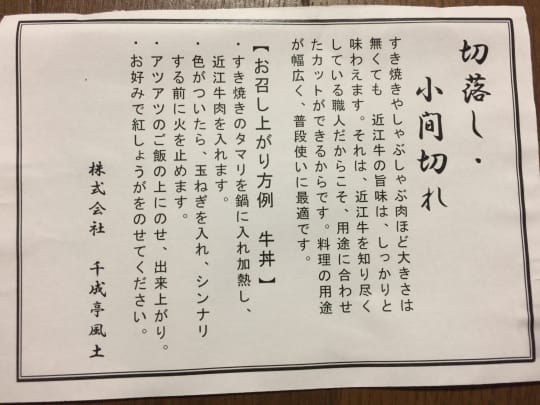 切落し・
小間切れ
すき焼きやしゃぶしゃぶ肉ほど大きさは
無くても、近江牛の旨味は、しっかりと
味わえます。それは、近江牛を知り尽く
している職人だからこそ、用途に合わせ
たカットができるからです。料理の用途
が幅広く、普段使いに最適です。
【お召し上がり方例 牛丼】
・すき焼きのタマリを鍋に入れ加熱し、
近江牛肉を入れます。
・色がついたら、玉ねぎを入れ、シンナリ
する前に火を止めます。
・アツアツのご飯の上にのせ、出来上がり。
・お好みで紅しょうがをのせてください。
株式会社 千成亭風土